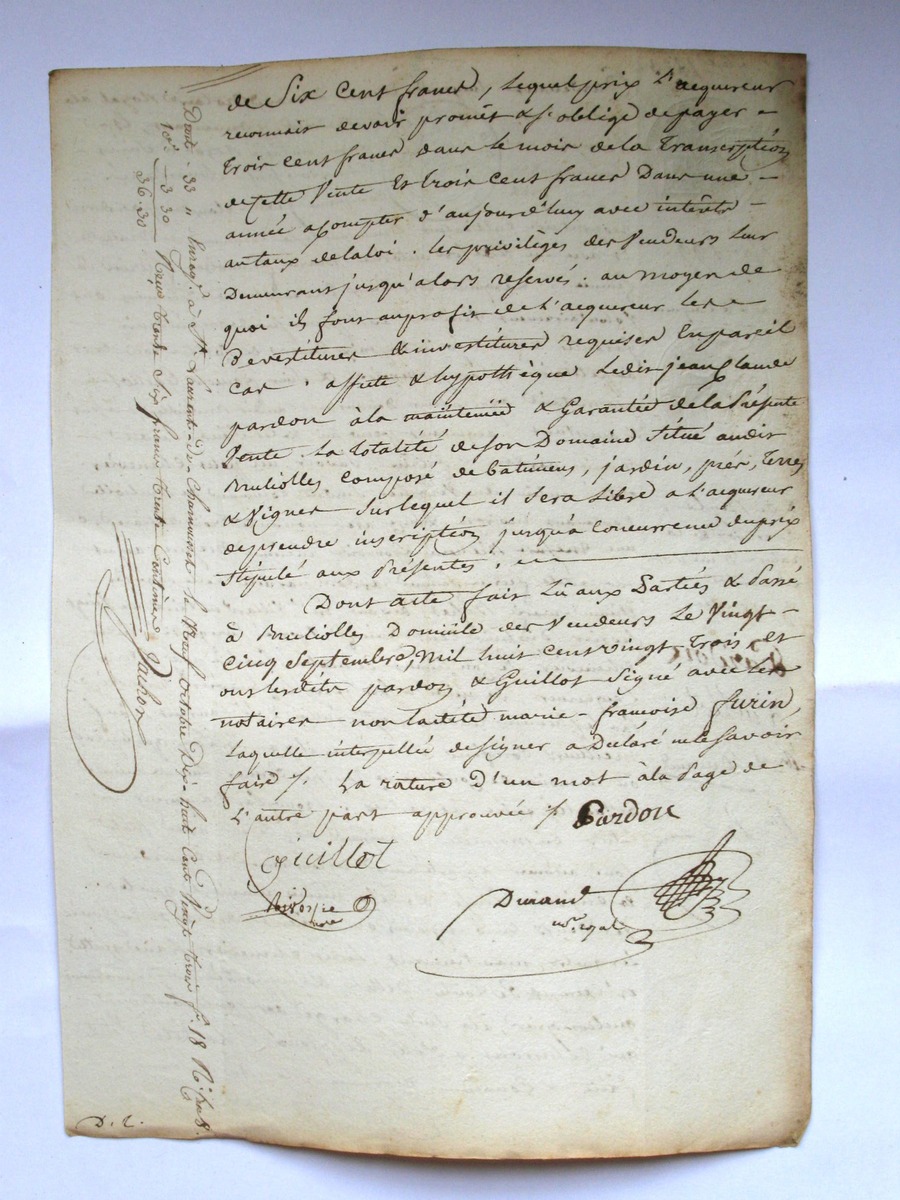 de Six Cent francs, lequel prix l'acquereur
reconnait devoir promêt & s'oblige de payer =
trois cent francs dans le mois de la Transcription
de cette Vente Et trois cent francs Dans une =
année acompter d'aujourd'huy avec intérêts =
au taux de la loi. les privilèges des Vendeurs leur
Demeurant jusqu'alors reservés. au moyen de
quoi ils font au profit de l'acquereur les =
Devestitures & investitures requises En pareil
cas. affecte & hypothèque ledit jean Claude
pardon à la maintenüe & Garantie de la Présente
Vente la totalité de son Domaine Situé audit
Brulliolles composé de batimens, jardin, prés, Terres
& Vignes Sur lequel il Sera libre a l'acquereur
de prendre inscription jusqu'à Concurrence du prix
Stipulé aux Présentes.
Dont acte fait lû aux Parties & Passé
à Brulliolles Domicile des Vendeurs le Vingt =
cinq Septembre, Mil huit cent vingt Trois, et
ont lesdits pardon & Guillot Signé avec les
notaires non ladite marie = françoise furin,
laquelle interpellée de signer a Declaré ne le Savoir
faire ⁒. La rature d'un mot à la Page de
l'autre part approuvée ⁒. Pardon
Guillot
Durand
nre royal
Dont. 33 " Enregé. à St. Laurent-de-Chamousset le Neuf octobre Dix huit Cent Vingt trois fo. 18
10e. — 3 30 Reçu trente Six francs trente Centimes
36.30
D. L.